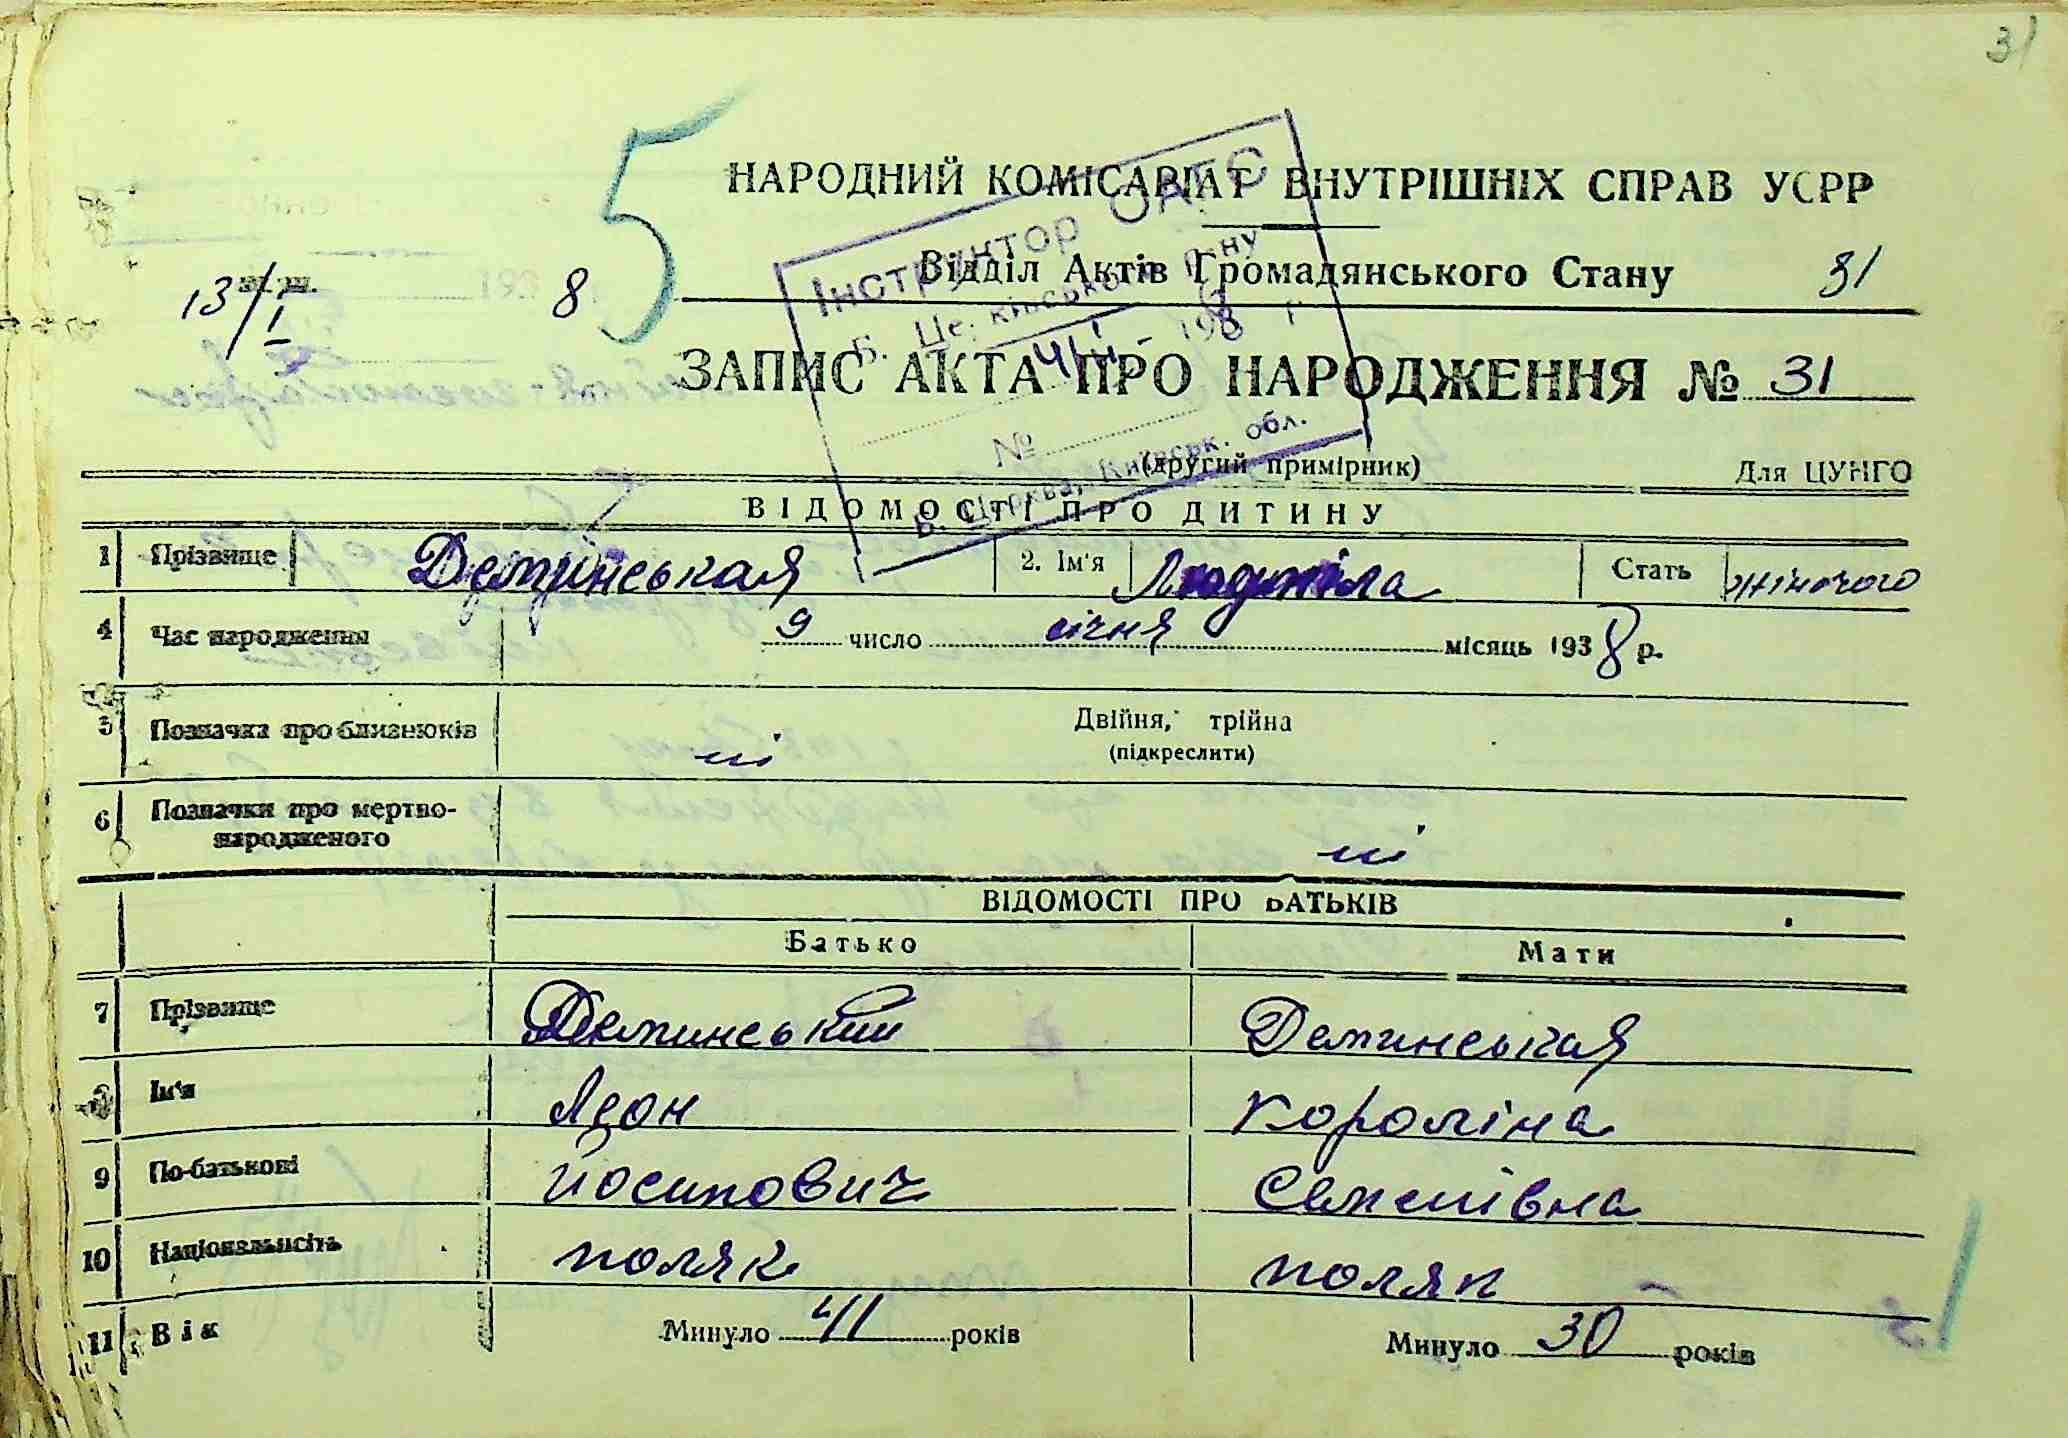 31
5
НАРОДНИЙ КОМІСАРІАТ ВНУТРІШНІХ СПРАВ УСРР
13/I 193 8
Відділ Актів Громадянського Стану 31
Інструктор ОАГС
193 8 г
№
Б. Церква, Київськ. обл.
ЗАПИС АКТА ПРО НАРОДЖЕННЯ № 31
(другий примірник) Для ЦУНГО
ВІДОМОСТІ ПРО ДИТИНУ
1 Прізвище Демінськая 2. Ім'я Людміла Стать жіночого
4 Час народження 9 число січня місяць 1938 р.
5 Позначка про близнюків ні Двійня, трійна
(підкреслити)
6 Позначки про мертво-
народженого ні
ВІДОМОСТІ ПРО БАТЬКІВ
Батько Мати
7 Прізвище Деминський Деминськая
8 Ім'я Леон Короліна
9 По-батькові Йосипович Семенівна
10 Національність поляк поляк
11 Вік Минуло 41 років Минуло 30 років